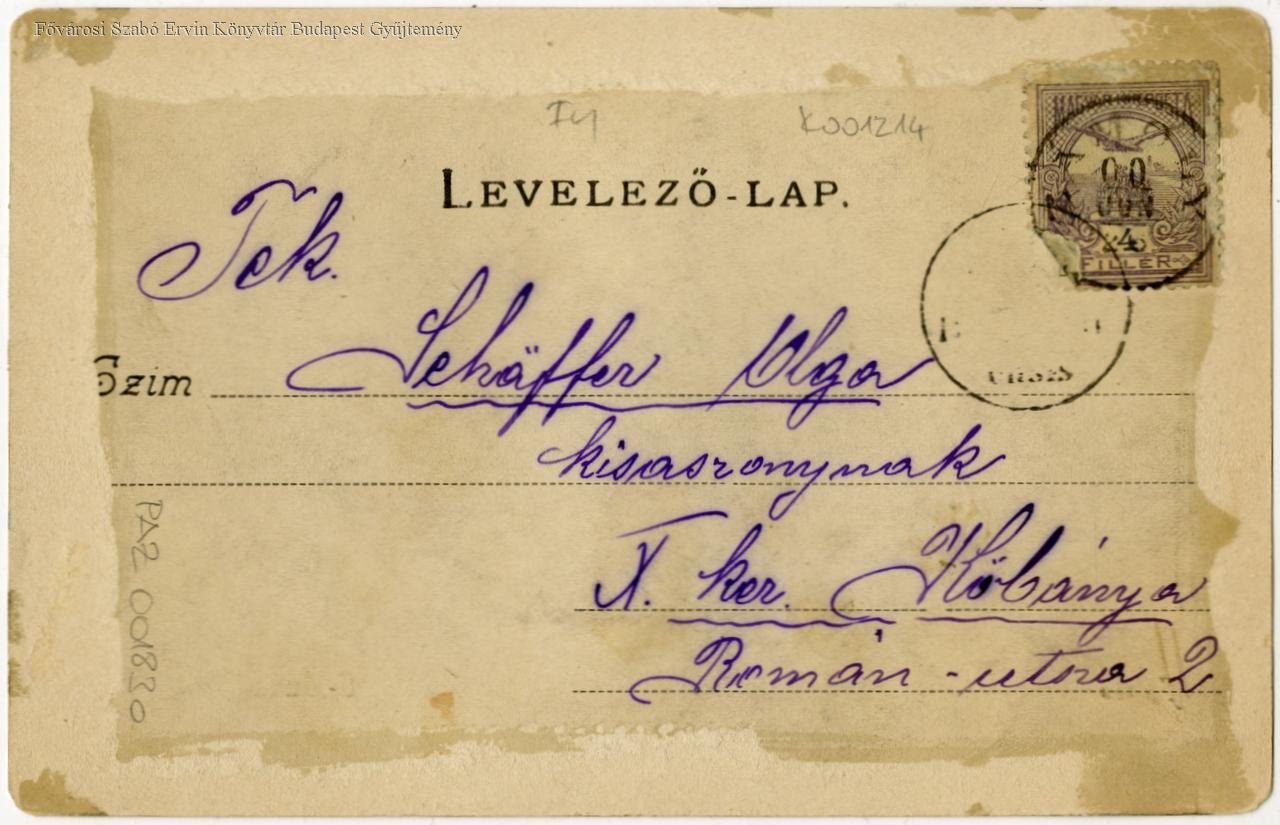 Fővárosi Szabó Ervin Könyvtár Budapest Gyűjtemény
K001214
LEVELEZŐ-LAP.
MAGYAR KIR. POSTA
4
FILLÉR
Tek.
Czim Schäffer Olga
kisasszonynak
X. ker. Kőbánya
Román-utca 2
PAZ 001830